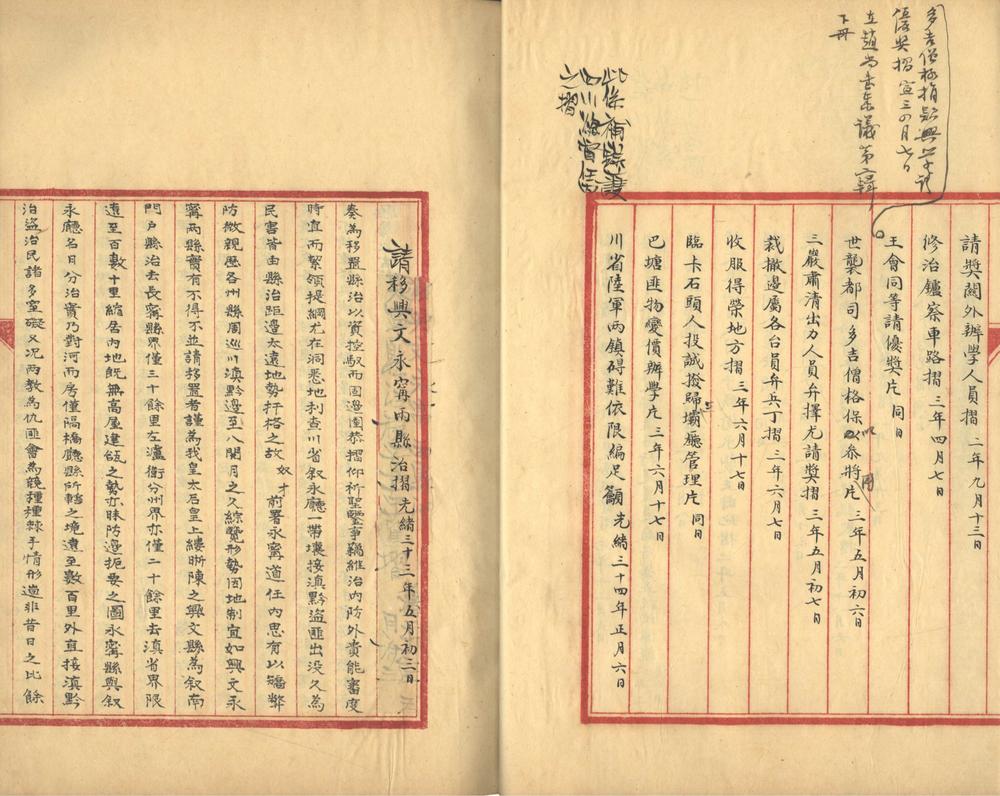 下冊
之摺
此係補錄
請獎關外辦學人員摺 二年九月十三日
修治鑪察車路摺 三年四月七日
王會同等請優獎片 同日
世襲都司多吉僧格保以參將片 三年五月初六日
三巖肅清出力人員弁擇尤請獎摺 三年五月初七日
裁撤邊廣各台員弁兵丁摺 三年六月七日
收服得榮地方摺 三年六月十七日
臨卡石頭人投誠撥歸三壩廳管理片 同日
巴塘匪物變價辦學片 三年六月十七日
川省陸軍兩鎮碍難依限編足籲 光緒三十四年正月六日
請移興文永甯兩縣治摺 光緒三十三年五月初三日
奏為移置縣治以資控馭而固邊圉恭摺仰祈聖鑒事竊維治內防外貴能審度
時宜而絜領提綱尤在洞悉地利查川省叙永廳一帶壤接滇黔盜匪出沒久為
民害皆由縣治距邊太遠地勢扞格之故奴才前署永甯道任內思有以矯弊
防微親歷各州縣周巡川滇黔邊至八閱月之久綜覽形勢因地制宜如興文永
甯兩縣實有不得不並請移置者謹為我皇太后皇上縷晰陳之興文縣為叙南
門户縣治去長甯縣界僅三十餘里左瀘衛分州界亦僅二十餘里去滇省界限
遠至百數十里縮居內地旣無高屋建瓴之勢亦昧防邊扼要之圖永甯縣與叙
永廳名曰分治實乃對河而居僅隔一橋廳縣所轄之境遠至數百里外直接滇黔
治盜治民諸多窒礙又况兩教為仇匪會為競種種棘手情形遠非昔日之比餘